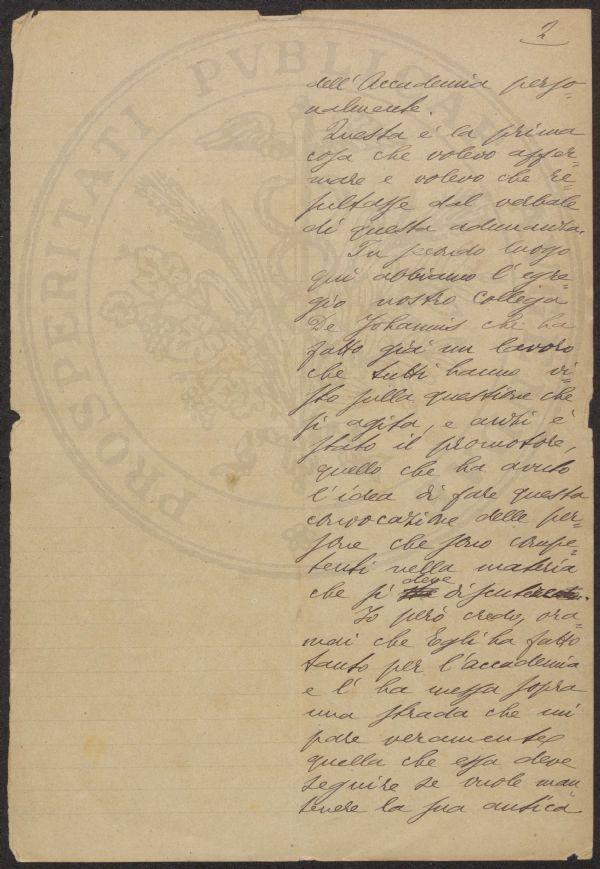 2
dell'Accademia perso-
nalmente.
Questa è la prima
cosa che volevo affer-
mare e volevo che re-
sultasse dal verbale
di questa adunanza.
In secondo luogo
qui abbiamo l'egre-
gio nostro collega
De Johannis che ha
fatto già un lavoro
che tutti hanno vi-
sto sulla questione che
si agita, e anzi è
stato il promotore,
quello che ha avuto
l'idea di fare questa
convocazione delle per-
sone che sono compe-
tenti nella materia
che si deve discutere.
Io però credo, ora-
mai che Egli ha fatto
tanto per l'accademia
e l'ha messa sopra
una strada che mi
pare veramente
quella che essa deve
seguire se vuole man
tenere la sua antica
PROSPERITATI PVBLICAE